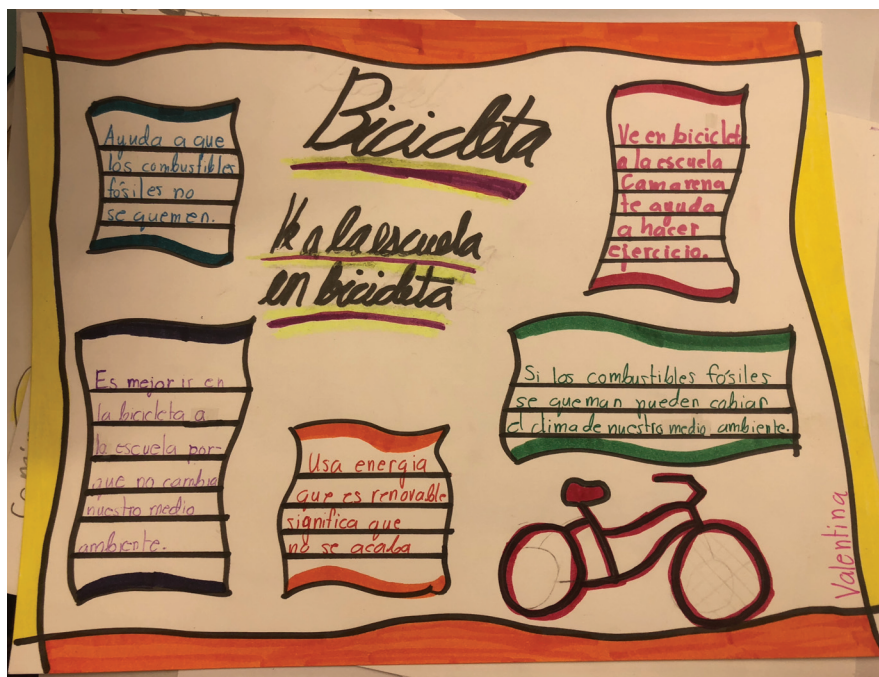 Bicicleta
Ve a la escuela
en bicicleta
Ayuda a que
los combustibles
fósiles no
se quemen.
Ve en biciclet
a la escuela
Camarena
te ayuda
a hacer
ejercicio.
Es mejor ir en
la bicicleta a
la escuela por-
que no cambia
nuestro medio
ambiente.
Usa energia
que es renovable
significa que
no se acaba
Si los combustibles fósiles
se queman pueden cabiar
el clima de nuestro medio ambiente.
Valentina